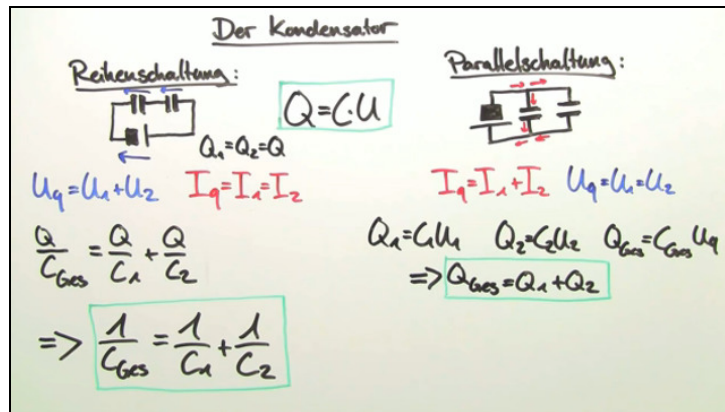 Der Kondensator
Reihenschaltung:
Q=C·U
Q₁=Q₂=Q
U_q=U₁+U₂
I_q=I₁=I₂
Q/C_Ges = Q/C₁ + Q/C₂
=> 1/C_Ges = 1/C₁ + 1/C₂
Parallelschaltung:
I_q=I₁+I₂ U_q=U₁=U₂
Q₁=C₁U₁ Q₂=C₂U₂ Q_Ges=C_Ges U_q
=> Q_Ges=Q₁+Q₂